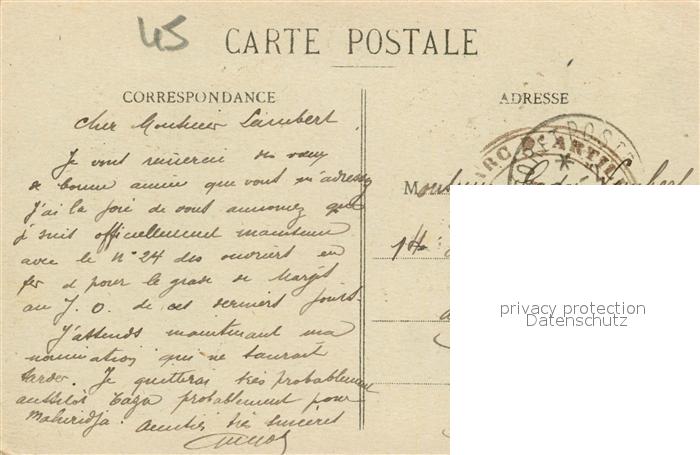 45
CARTE POSTALE
CORRESPONDANCE
ADRESSE
Cher Monsieur Lambert
Je vous remercie des vœux
de bonne année que vous m'adressez
J'ai la joie de vous annoncer que
je suis officiellement maintenu
avec le N° 24 des ouvriers en
fer et pour le grade de Margis
au J.O. de ces derniers jours.
J'attends maintenant ma
nomination qui ne saurait
tarder. Je quitterai très probablement
aussitôt Taza probablement pour
Mahiridja. Amitiés très sincères
PARC D'ARTILL
POSTE
Monsieur
privacy protection
Datenschutz